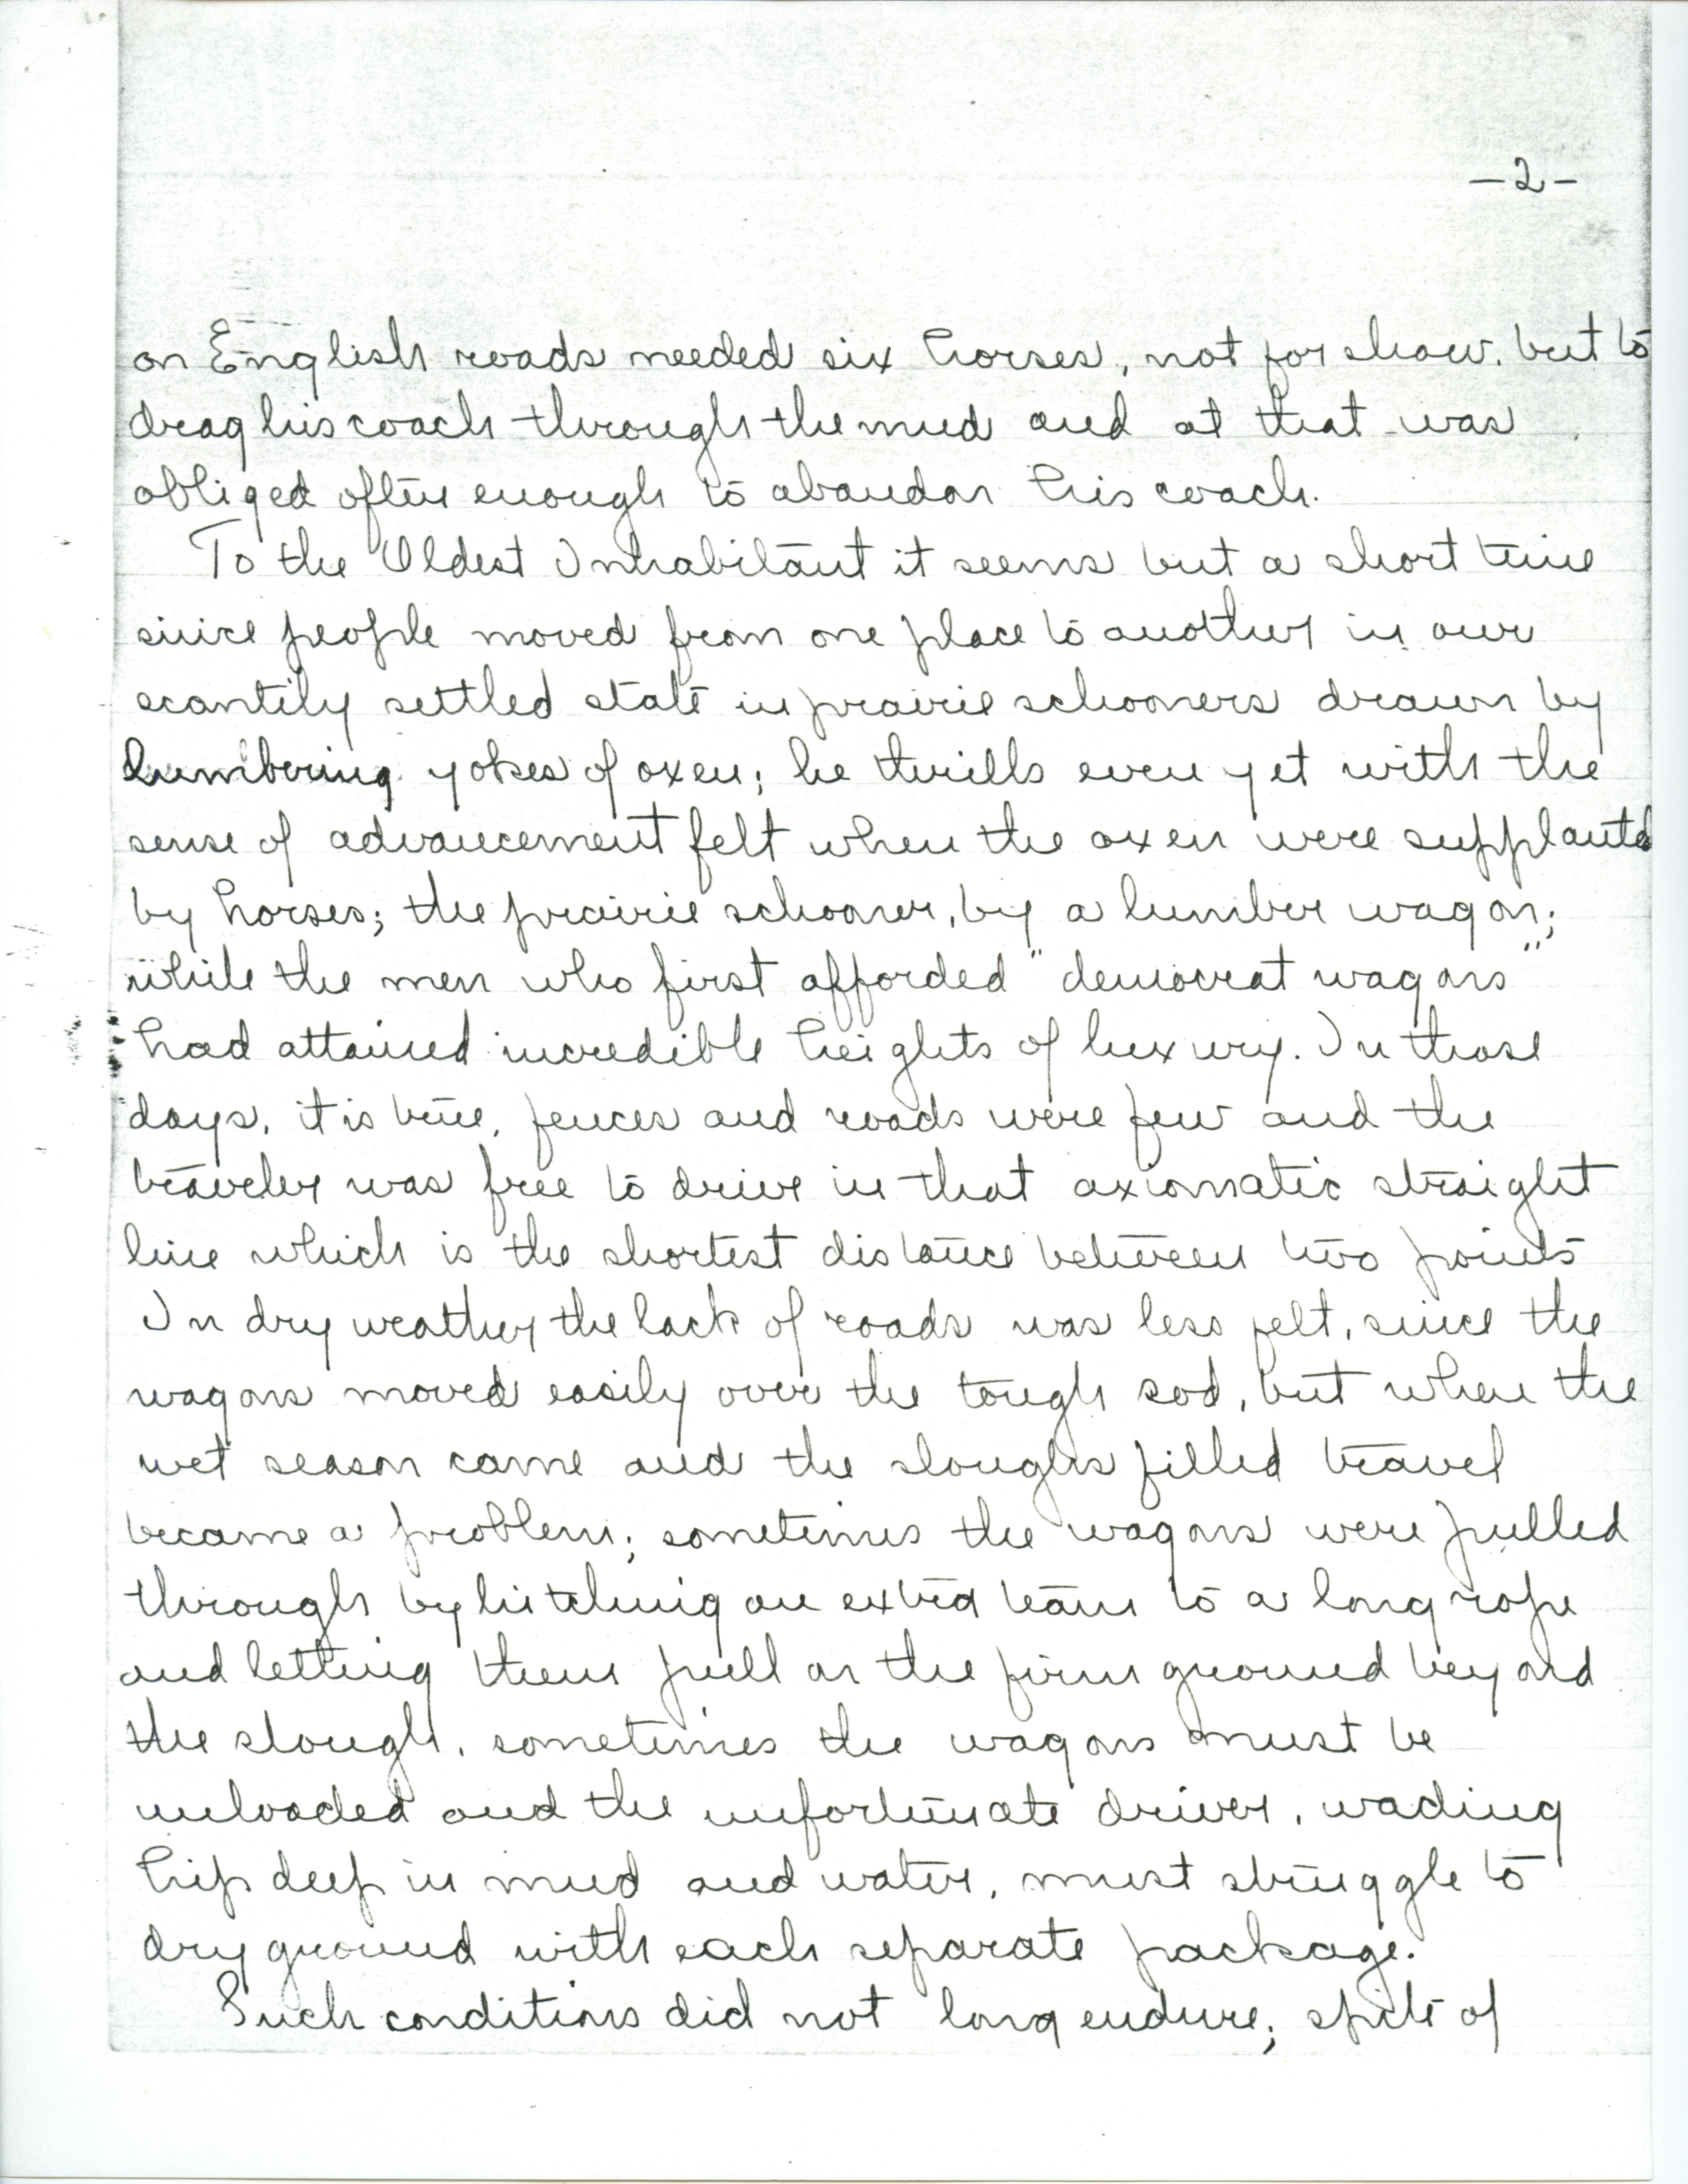 -2-
on English roads needed six horses, not for show, but to
drag his coach through the mud and at that was
obliged often enough to abandon his coach.
To the Oldest Inhabitant it seems but a short time
since people moved from one place to another in our
scantily settled state in prairie schooners drawn by
lumbering yokes of oxen; he thrills even yet with the
sense of advancement felt when the oxen were supplanted
by horses; the prairie schooner, by a lumber wagon;
while the men who first afforded "democrat wagons"
had attained incredible heights of luxury. In those
days, it is true, fences and roads were few and the
traveler was free to drive in that axiomatic straight
line which is the shortest distance between two points
In dry weather the lack of roads was less felt, since the
wagons moved easily over the tough sod, but when the
wet season came and the sloughs filled travel
became a problem; sometimes the wagons were pulled
through by hitching an extra team to a long rope
and letting them pull on the firm ground beyond
the slough, sometimes the wagons must be
unloaded and the unfortunate driver, wading
hip deep in mud and water, must struggle to
dry ground with each separate package.
Such conditions did not long endure; spite of